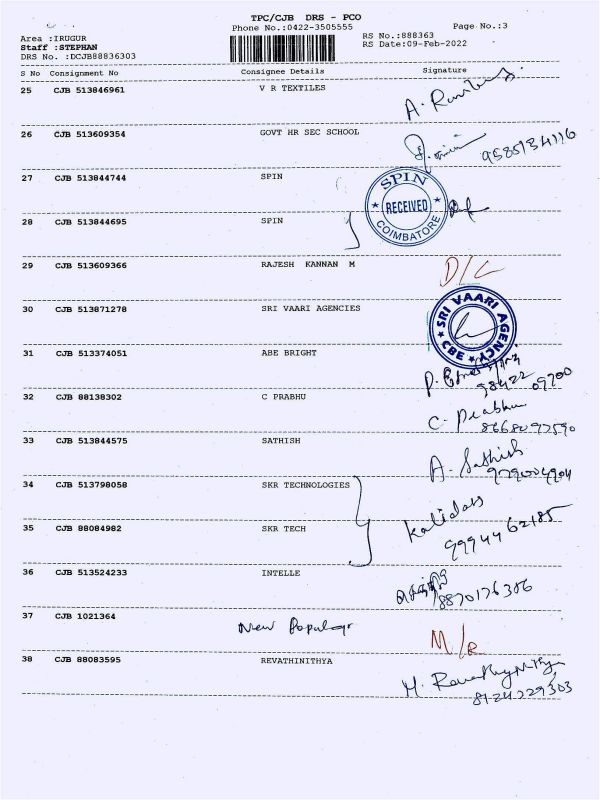 TPC/CJB DRS - PCO
Phone No.:0422-3505555
Page No.:3
Area :IRUGUR
Staff :STEPHAN
DRS No. :DCJB88836303
RS No.:888363
RS Date:09-Feb-2022
S No Consignment No Consignee Details Signature
25 CJB 513846961 V R TEXTILES
26 CJB 513609354 GOVT HR SEC SCHOOL
9585134116
27 CJB 513844744 SPIN
SPIN RECEIVED COIMBATORE
28 CJB 513844695 SPIN
29 CJB 513609366 RAJESH KANNAN M D/L
30 CJB 513871278 SRI VAARI AGENCIES
SRI VAARI AGENCY CBE
31 CJB 513374051 ABE BRIGHT
98422 09700
32 CJB 88138302 C PRABHU C. Prabhu
8668097590
33 CJB 513844575 SATHISH A. Sathish
9790004904
34 CJB 513798058 SKR TECHNOLOGIES
Kalidass
35 CJB 88084982 SKR TECH 9994462185
36 CJB 513524233 INTELLE
8870176386
37 CJB 1021364 New Popular M/R
38 CJB 88083595 REVATHINITHYA M. RevathyNithya
8124229303